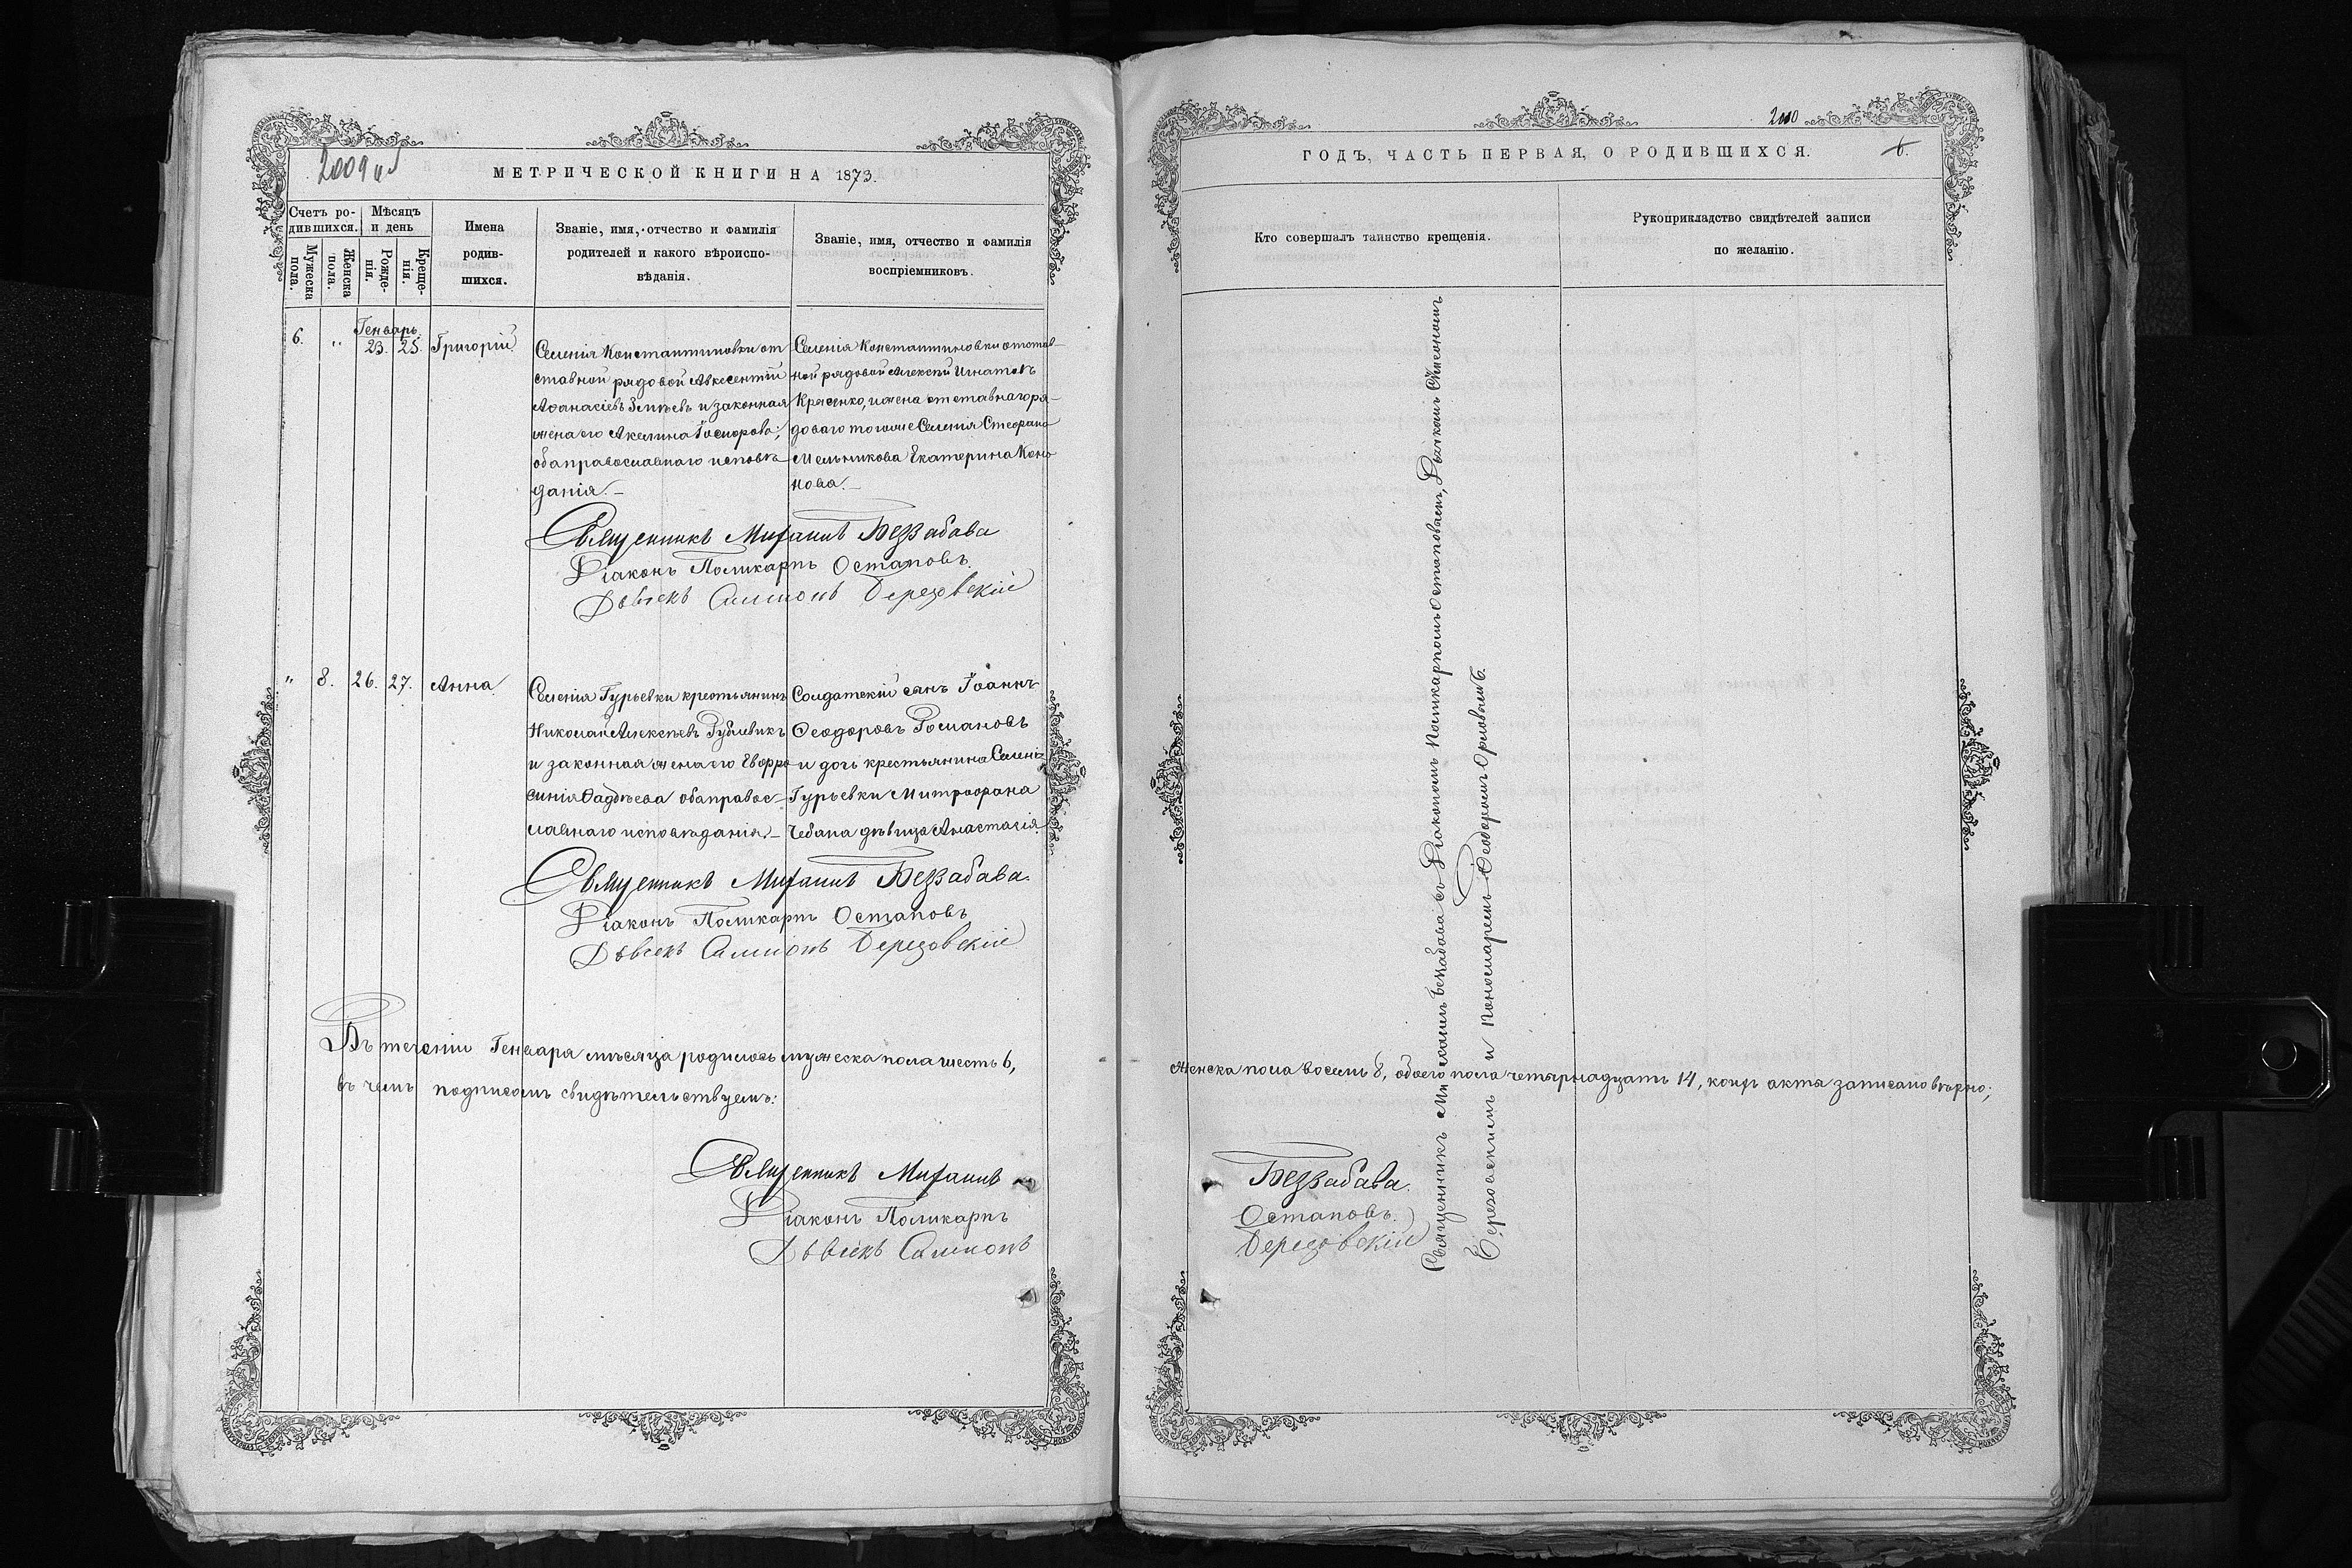 2009 об
МЕТРИЧЕСКОЙ КНИГИ НА 1873.
Счетъ ро-
дившихся.
Мѣсяцъ
и день
Мужеска
пола.
Женска
пола.
Рожде-
нія.
Креще-
нія.
Имена
родив-
шихся.
Званіе, имя, отчество и фамилія
родителей и какого вѣроиспо-
вѣданія.
Званіе, имя, отчество и фамилія
воспріемниковъ.
6. „ Генварь 23. 25. Григорій
Селенія Константиновки от
ставной рядовой Авксентій
Аѳанасіевъ и законная
жена его Акилина
оба православнаго исповѣ-
данія.–
Селенія Константиновки отстав-
ной рядовой Алексѣй Игнатовъ
Красенко, и жена отставнаго ря-
доваго тогоже Селенія Стефана
Мельникова Екатерина Коно
нова.–
Священникъ Михаилъ Безвабава
Діаконъ Поликарпъ Остаповъ.
Дьячекъ Симеонъ Березовскій
„ 8. 26. 27. Анна.
Селенія Гурьевки крестьянинъ
Николай Алексѣевъ
и законная жена его Евфро
синія Фадѣева оба правос-
лавнаго исповѣданія.–
Солдатскій сынъ Іоаннъ
Ѳеодоровъ Романовъ
и дочь крестьянина Селенія
Гурьевки Митрофана
Чебана дѣвица Анастасія.
Священникъ Михаилъ Безвабава.
Діаконъ Поликарпъ Остаповъ
Дьячекъ Симеонъ Березовскій
Въ теченіи Генваря мѣсяца родилось мужеска пола шесть 6,
въ чемъ подписомъ свидѣтельствуемъ:
Священникъ Михаилъ
Діаконъ Поликарпъ
Дьячекъ Симеонъ
ГОДЪ, ЧАСТЬ ПЕРВАЯ, О РОДИВШИХСЯ.
6.
Кто совершалъ таинство крещенія.
Рукоприкладство свидѣтелей записи
по желанію.
Священникъ Михаилъ Безвабава съ Діакономъ Поликарпомъ Остаповымъ, Дьячкомъ Симеономъ
Березовскимъ и Пономаремъ Ѳеодоромъ Орловымъ.
женска пола восемь 8, обоего пола четырнадцать 14, коихъ акты записано вѣрно;
Безвабава.
Остаповъ.
Березовскій